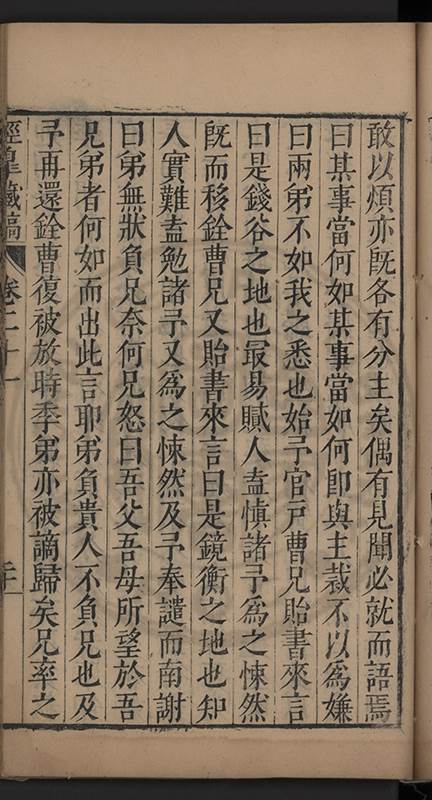 敢以煩亦旣各有分主矣偶有見聞必就而語焉
曰某事當何如某事當如何卽與主裁不以爲嫌
曰兩弟不如我之悉也始予官戸曹兄貽書來言
曰是錢谷之地也最易賦人盍愼諸予爲之悚然
旣而移銓曹兄又貽書來言曰是鏡衡之地也知
人實難盍勉諸予又爲之悚然及予奉譴而南謝
曰弟無狀負兄奈何兄怒曰吾父吾母所望於吾
兄弟者何如而出此言耶弟負貴人不負兄也及
予再還銓曹復被放時季弟亦被謫歸矣兄率之
涇臯藏稿 卷二十一 二十一